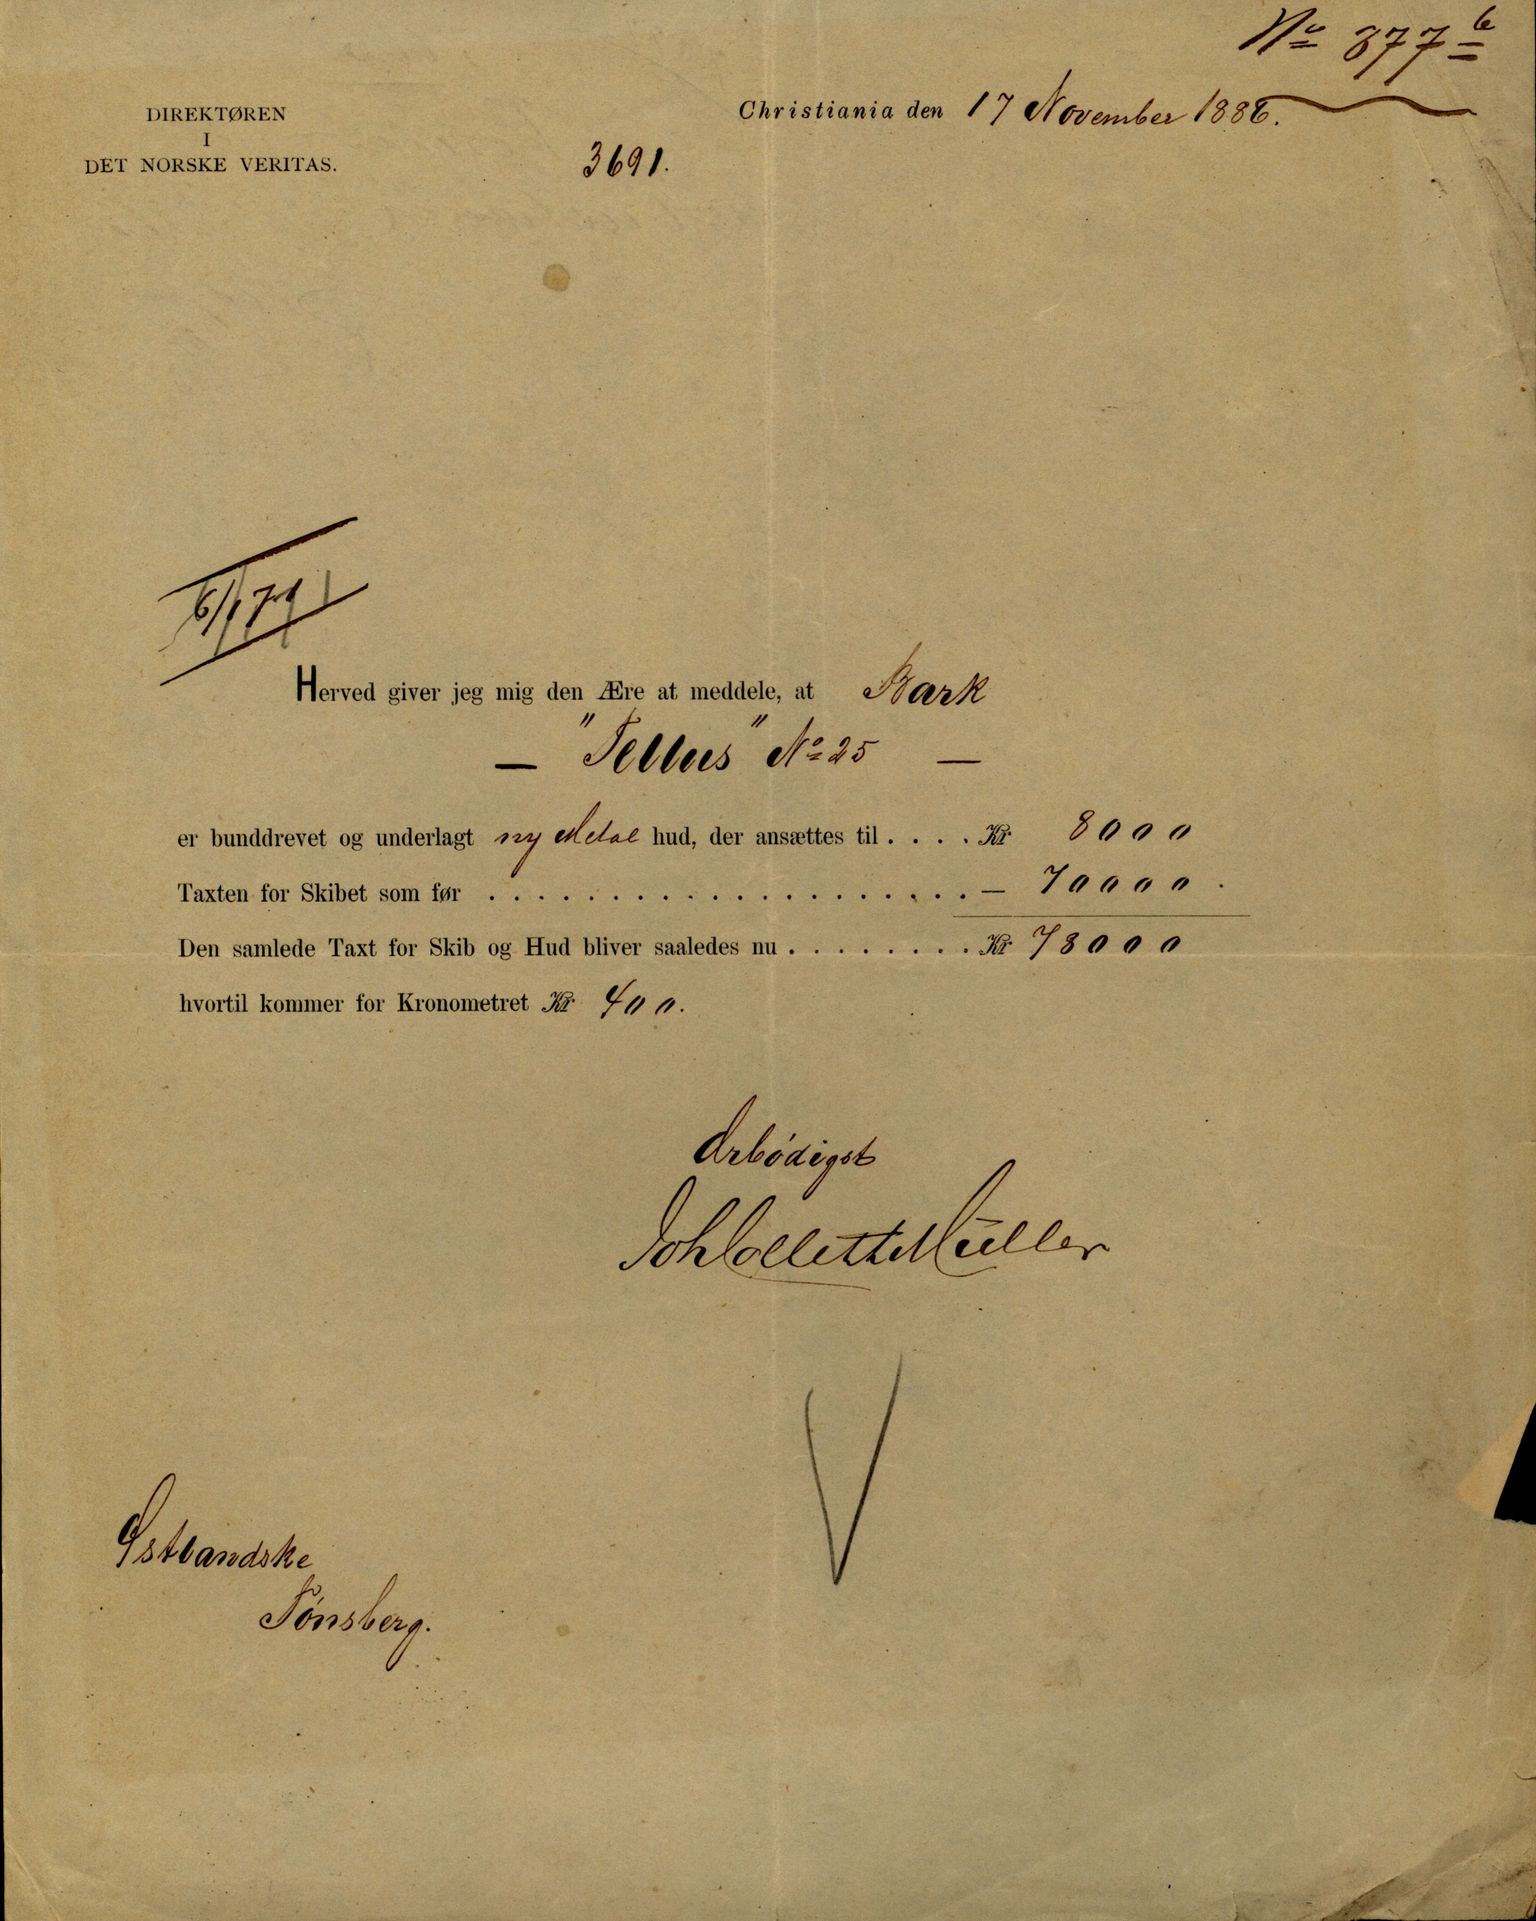 No 377 b
DIREKTØREN
I
DET NORSKE VERITAS.
Christiania den 17 November 1886.
3691.
Herved giver jeg mig den Ære at meddele, at Bark
— "Tellus" No 25 —
er bunddrevet og underlagt ny Metal hud, der ansættes til . . . . Kr 8000
Taxten for Skibet som før . . . . . . . . . . . . . . . . . . . . — 70000.
Den samlede Taxt for Skib og Hud bliver saaledes nu . . . . . . . . Kr 78000
hvortil kommer for Kronometret Kr 400.
Ærbødigst
Joh Collett Müller
Østlandske
Tønsberg.